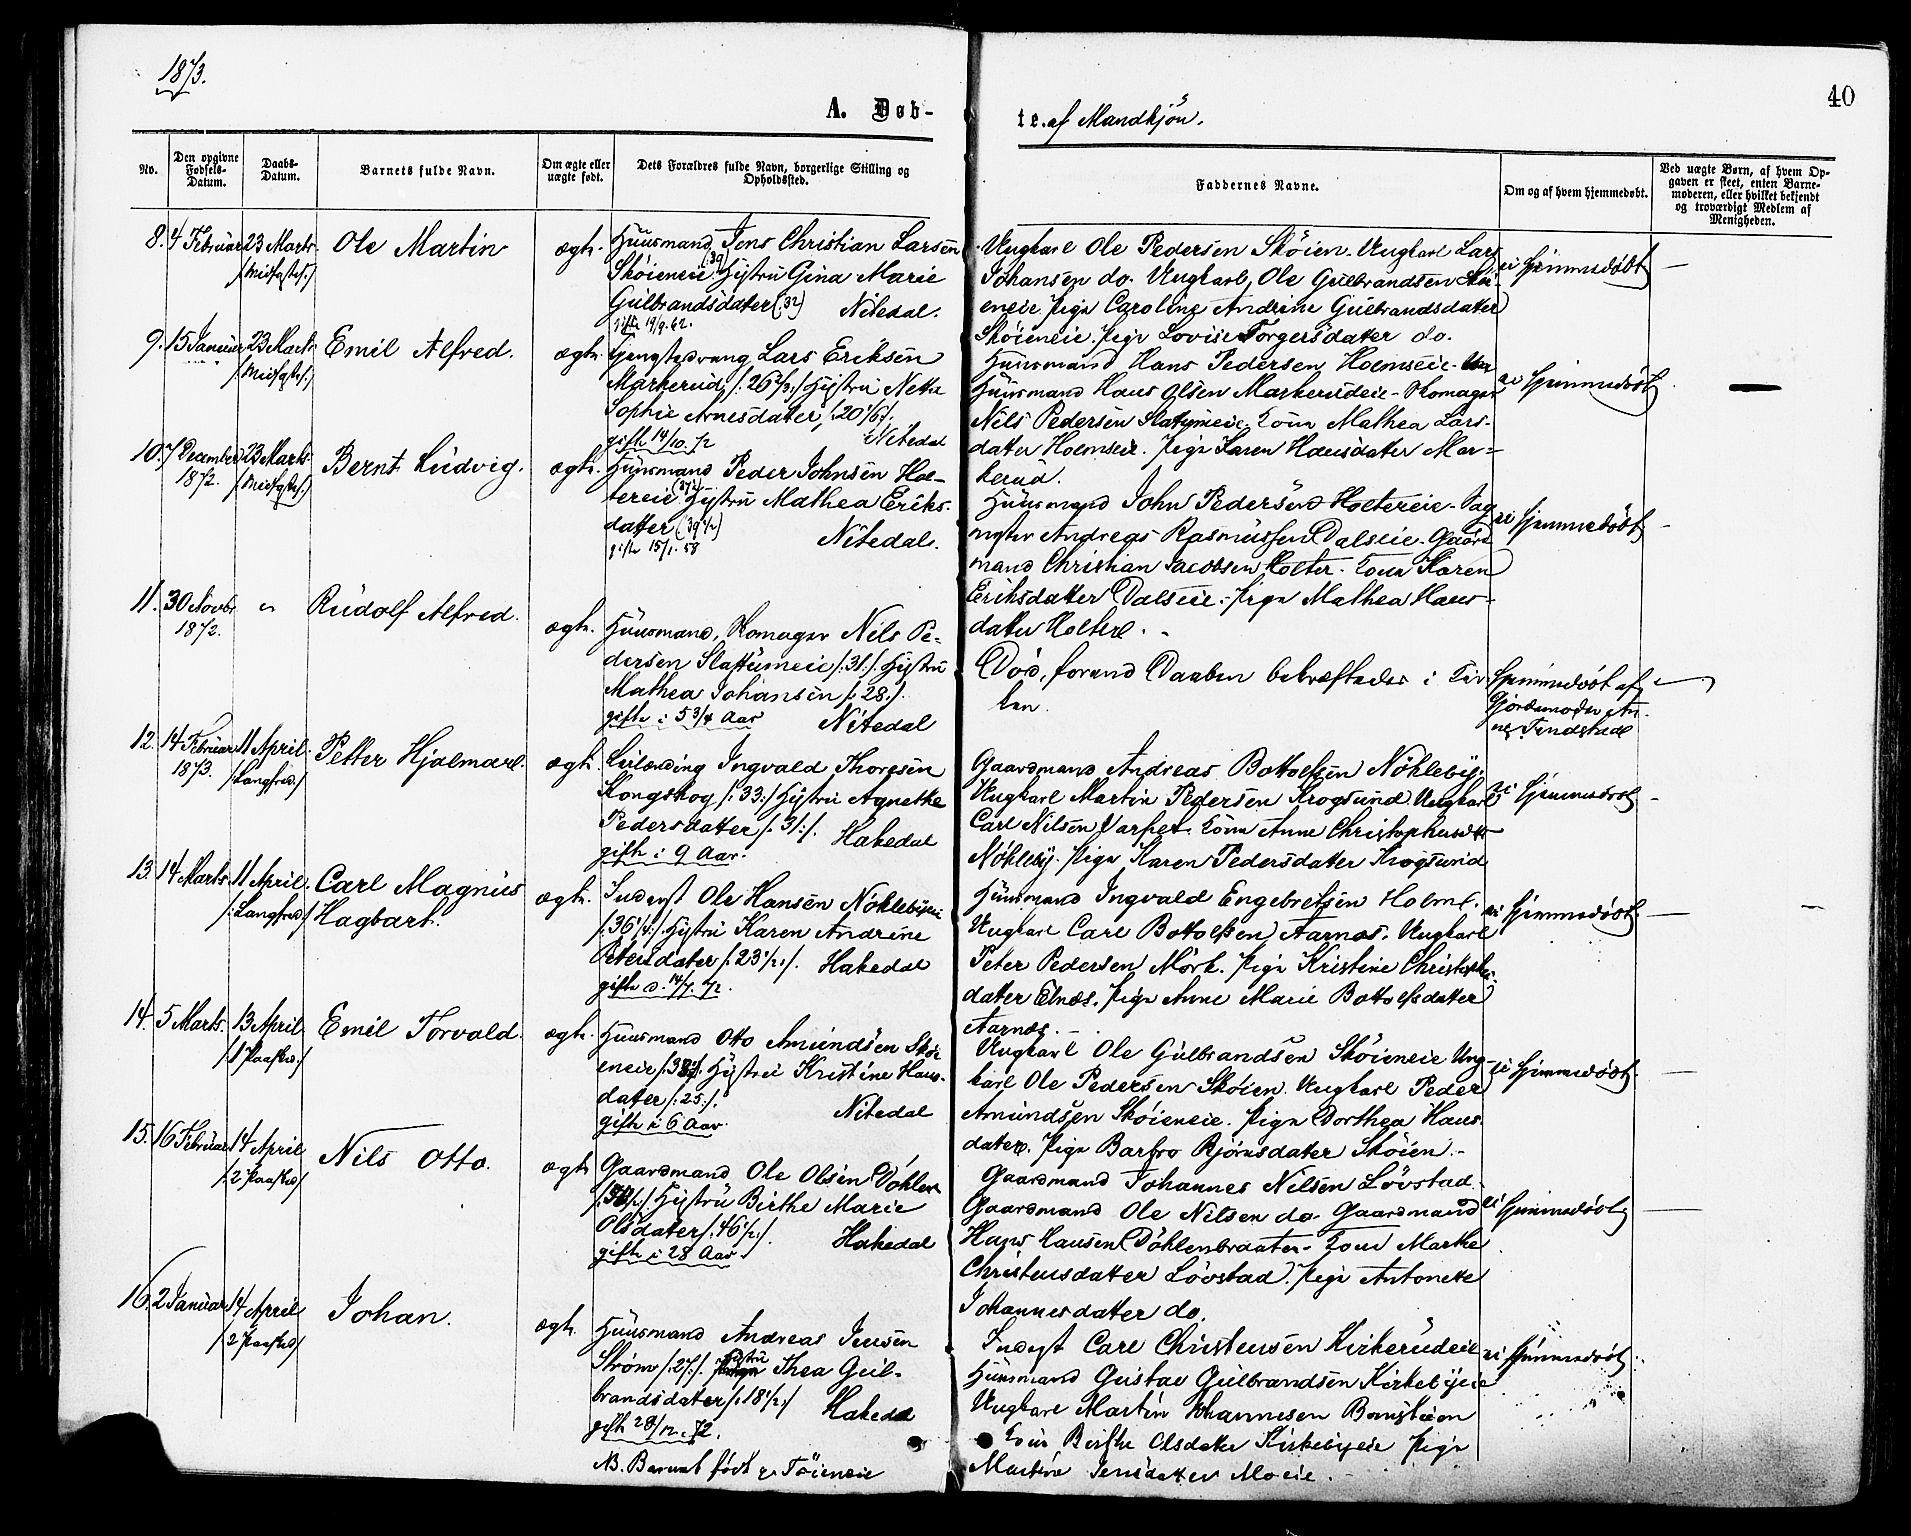 1873.
40
A. Døb-
te. af Mandkjön.
No.
Den opgivne Fødsels-Datum.
Daabs-Datum.
Barnets fulde Navn.
Om ægte eller uægte født.
Dets Forældres fulde Navn, borgerlige Stilling og Opholdssted.
Faddernes Navne.
Om og af hvem hjemmedøbt.
Ved uægte Børn, af hvem Op-
gaven er skeet, enten Barne-
moderen, eller hvilket bekjendt
og troværdigt Medlem af
Menigheden.
8. 4 Februar 23 Marts
/:Midfast:/
Ole Martin
ægte.
Huusmand, Jens Christian Larsen
Skøieneie (:39) Hustru Gina Marie
Gulbrandsdater (:32) Nitedal.
gift 19/9. 62.
Ungkarl Ole Pedersen Skøien. Ungkarl Lars
Johansen do. Ungkarl, Ole Gulbrandsen Skøi-
eneie. Pige Caroline Andrine Gulbrandsdatter
Skøieneie. Pige Lovise Torgersdatter do.
ei hjemmedøbt
9. 15 Januar 23 Marts
/:Midfast:/
Emil Alfred.
ægte.
Lars Eriksen
Markerud, /:26 2/3:/ Hustru Nethe
Sophie Arnesdatter, /:20 1/6:/.
gift 14/10. 72 Nitedal
Huusmand Hans Pedersen Holmseie.
Huusmand Hans Olsen Markerudeie - Skomager
Nils Pedersen Slattumeie. Kone Mathea Lars-
datter Holmseie. Pige Karen Hansdater Mar-
kerud.
ei hjemmedøbt
10. 7 December 23 Marts
1872. /:Midfast:/
Bernt Ludvig.
ægte.
Huusmand Peder Johnsen Hol-
tereie Hustru Mathea Eriks-
datter (39 1/2)
gift 15/1. 58 Nitedal.
Huusmand John Pedersen Holtereie - Sag-
mester Andreas Rasmussen Dalseie. Gaard-
mand Christian Jacobsen Holter. Kone Karen
Eriksdatter Dalseie. Pige Mathea Hans-
datter Holter.
ei hjemmedøbt
11. 30 Novbr
1872.
Rudolf Alfred.
ægte.
Huusmand, Skomager Nils Pe-
dersen Slattumeie /:31:/. Hustru
Mathea Johansen /:28:/.
gifte i 5 3/4 Aar Nitedal
Død, forend Daaben bekræftedes i Kir-
ken.
Hjemmedøbt af
Gjordemoder An-
ne Tindstad
12. 14 Februar 11 April
1873. /:Langfred:/
Petter Hjalmar.
ægte.
Leilænding Ingvald Thoresen
Kongskog /:33:/ Hustru Agnethe
Pedersdatter /:31:/. Hakedal
gifte i 9 Aar.
Gaardmand Andreas Bottolfsen Nøkleby.
Ungkarl Martin Pedersen Krogsund. Ungkarl
Carl Nilsen Varpet. Kone Anne Christophersdtr
Nøkleby. Pige Karen Pedersdatter Krogsund
ei hjemmedøbt
13. 14 Marts. 11 April.
/:Langfred:/
Carl Magnus
Hagbart.
ægte.
Inderst Ole Hansen Nøklebyeie
/:36 1/4:/. Hustru Karen Andrine
Petersdater /:23 1/2:/. Hakedal
gifte d. 14/7. 72.
Huusmand Ingvald Engebretsen Holm.
Ungkarl Carl Bottolfsen Aarnæs. Ungkarl
Peter Pedersen Mørk. Pige Kristine Christophers-
dater Elnæs. Pige Anne Marie Bottolfsdatter
Aarnæs.
ei hjemmedøbt.
14. 5 Marts. 13 April
/:1 Paaskd:/
Emil Torvald.
ægte.
Huusmand Otto Amundsen Skøi-
eneie Hustru Kristine Hans-
dater /:25:/. Nitedal
gifte i 6 Aar.
Ungkarl Ole Gulbrandsen Skøieneie Ung-
karl Ole Pedersen Skøien. Ungkarl Peder
Amundsen Skøieneie. Pige Dorthea Hans-
dater. Pige Barbro Bjørnsdater Skøien.
ei hjemmedøbt.
15. 16 Februar 14 April
/:2 Paaskd:/
Nils Otto.
ægte
Gaardmand Ole Olsen Døhlen
Hustru Birthe Marie
Olsdater /:46 1/2:/. Hakedal
gifte i 28 Aar
Gaardmand Johannes Nilsen Løvstad.
Gaardmand Ole Nilsen do. Gaardmand
Hans Hansen Døhlenbraaten. Kone Marthe
Christensdatter Løvstad. Pige Antonette
Johannesdater do.
ei hjemmedøbt
16. 2 Januar 14 April
/:2 Paaskd:/
Johan.
ægte.
Huusmand Andreas Jensen
Strøm /:27:/. Hustru Thea Gul-
brandsdater /:18 1/2:/ Hakedal
gifte 28/12. 72.
NB. Barnet født p. Tøieneie
Inderst Carl Christensen Kirkerudeie
Huusmand Gustav Gulbrandsen Kirkebyeie
Ungkarl Martin Johannesen
Kone Birthe Olsdater Kirkebyeie Pige
Martine Jensdatter Moeie.
ei hjemmedøbt